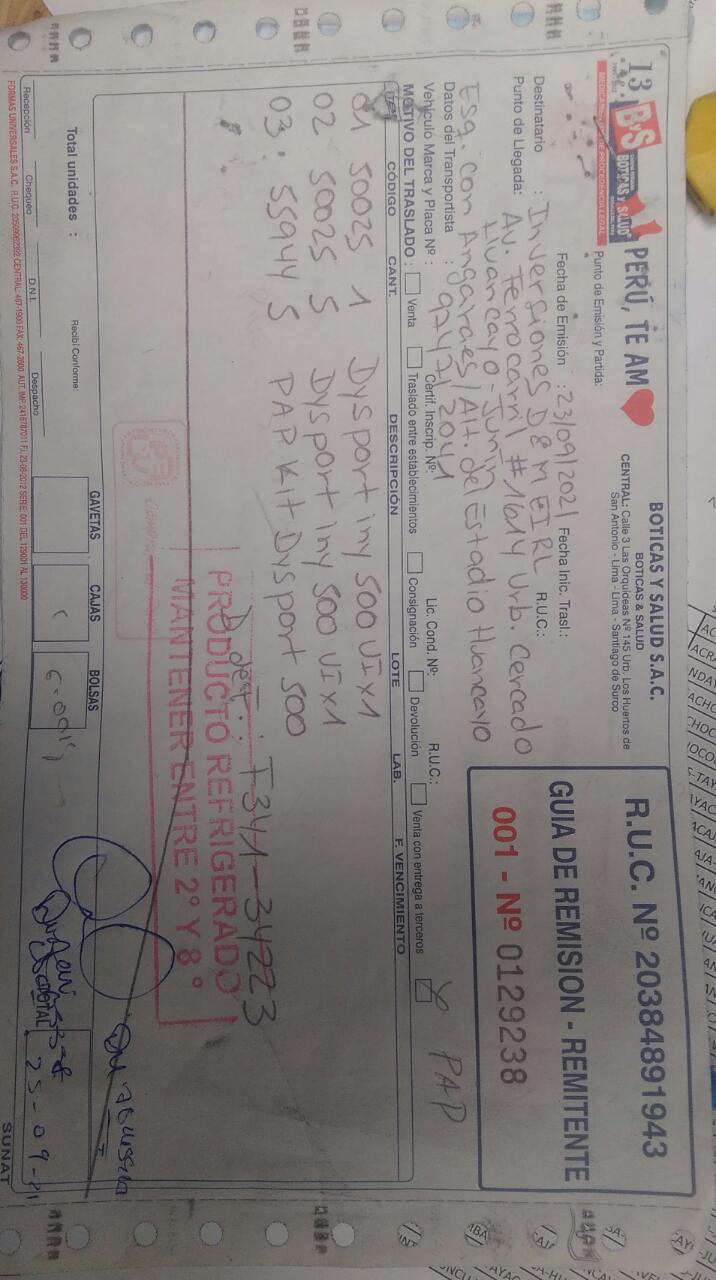 13
ByS
BOTICAS Y SALUD
PERÚ, TE AM
MEDICAMENTOS DE PROCEDENCIA LEGAL
BOTICAS Y SALUD S.A.C.
BOTICAS & SALUD
CENTRAL: Calle 3 Las Orquídeas Nº 145 Urb. Los Huertos de
San Antonio - Lima - Lima - Santiago de Surco
R.U.C. Nº 20384891943
GUIA DE REMISION - REMITENTE
001 - Nº 0129238
Punto de Emisión y Partida:
Fecha de Emisión : 23/09/2021 Fecha Inic. Trasl.:
Destinatario : Inversiones D & M EIRL R.U.C.:
Punto de Llegada: Av. Ferrocarril # 1614 Urb. Cercado
Huancayo - Junín
Esq. con Angaraes / Alt. del Estadio Huancayo
Datos del Transportista : R.U.C.:
Vehículo Marca y Placa Nº : Certif. Inscrip. Nº: Lic. Cond. Nº:
MOTIVO DEL TRASLADO : Venta Traslado entre establecimientos Consignación Devolución Venta con entrega a terceros X PAP
ITEM CÓDIGO CANT. DESCRIPCIÓN LOTE LAB. F. VENCIMIENTO
01 50025 1 Dysport iny 500 UI x1
02 50025 5 Dysport iny 500 UI x1
03. 55944 5 PAP Kit Dysport 500
F341-34223
PRODUCTO REFRIGERADO
MANTENER ENTRE 2° Y 8°
GAVETAS CAJAS BOLSAS TOTAL
Total unidades :
Recibí Conforme:
25-09-21
Recepción Chequeo D.N.I. Despacho
SUNAT
FORMAS UNIVERSALES S.A.C. R.U.C.